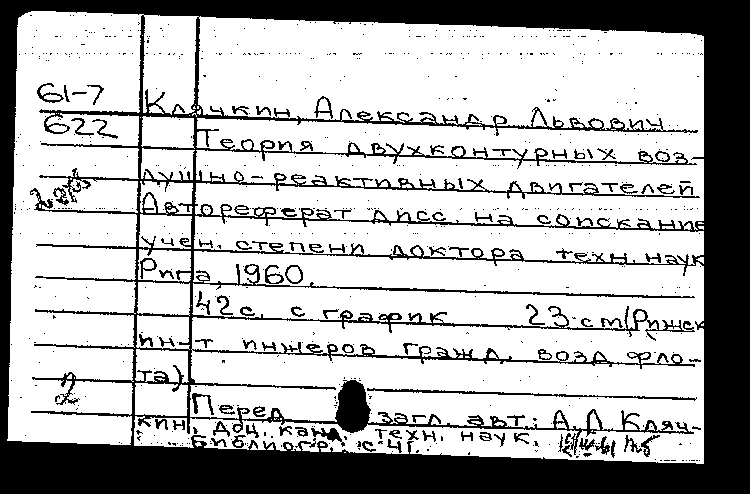 61-7
622
Клячкин, Александр Львович
Теория двухконтурных воз-
душно-реактивных двигателей
Автореферат дисс. на соискание
учен. степени доктора техн. наук
Рига, 1960.
42с. с график 23 cm (Рижск
ин-т инжеров гражд. возд. фло-
та).
2
Перед загл. авт.: А.Л Кляч-
кин, доц. канд. техн. наук.
Библиогр.: с 41.